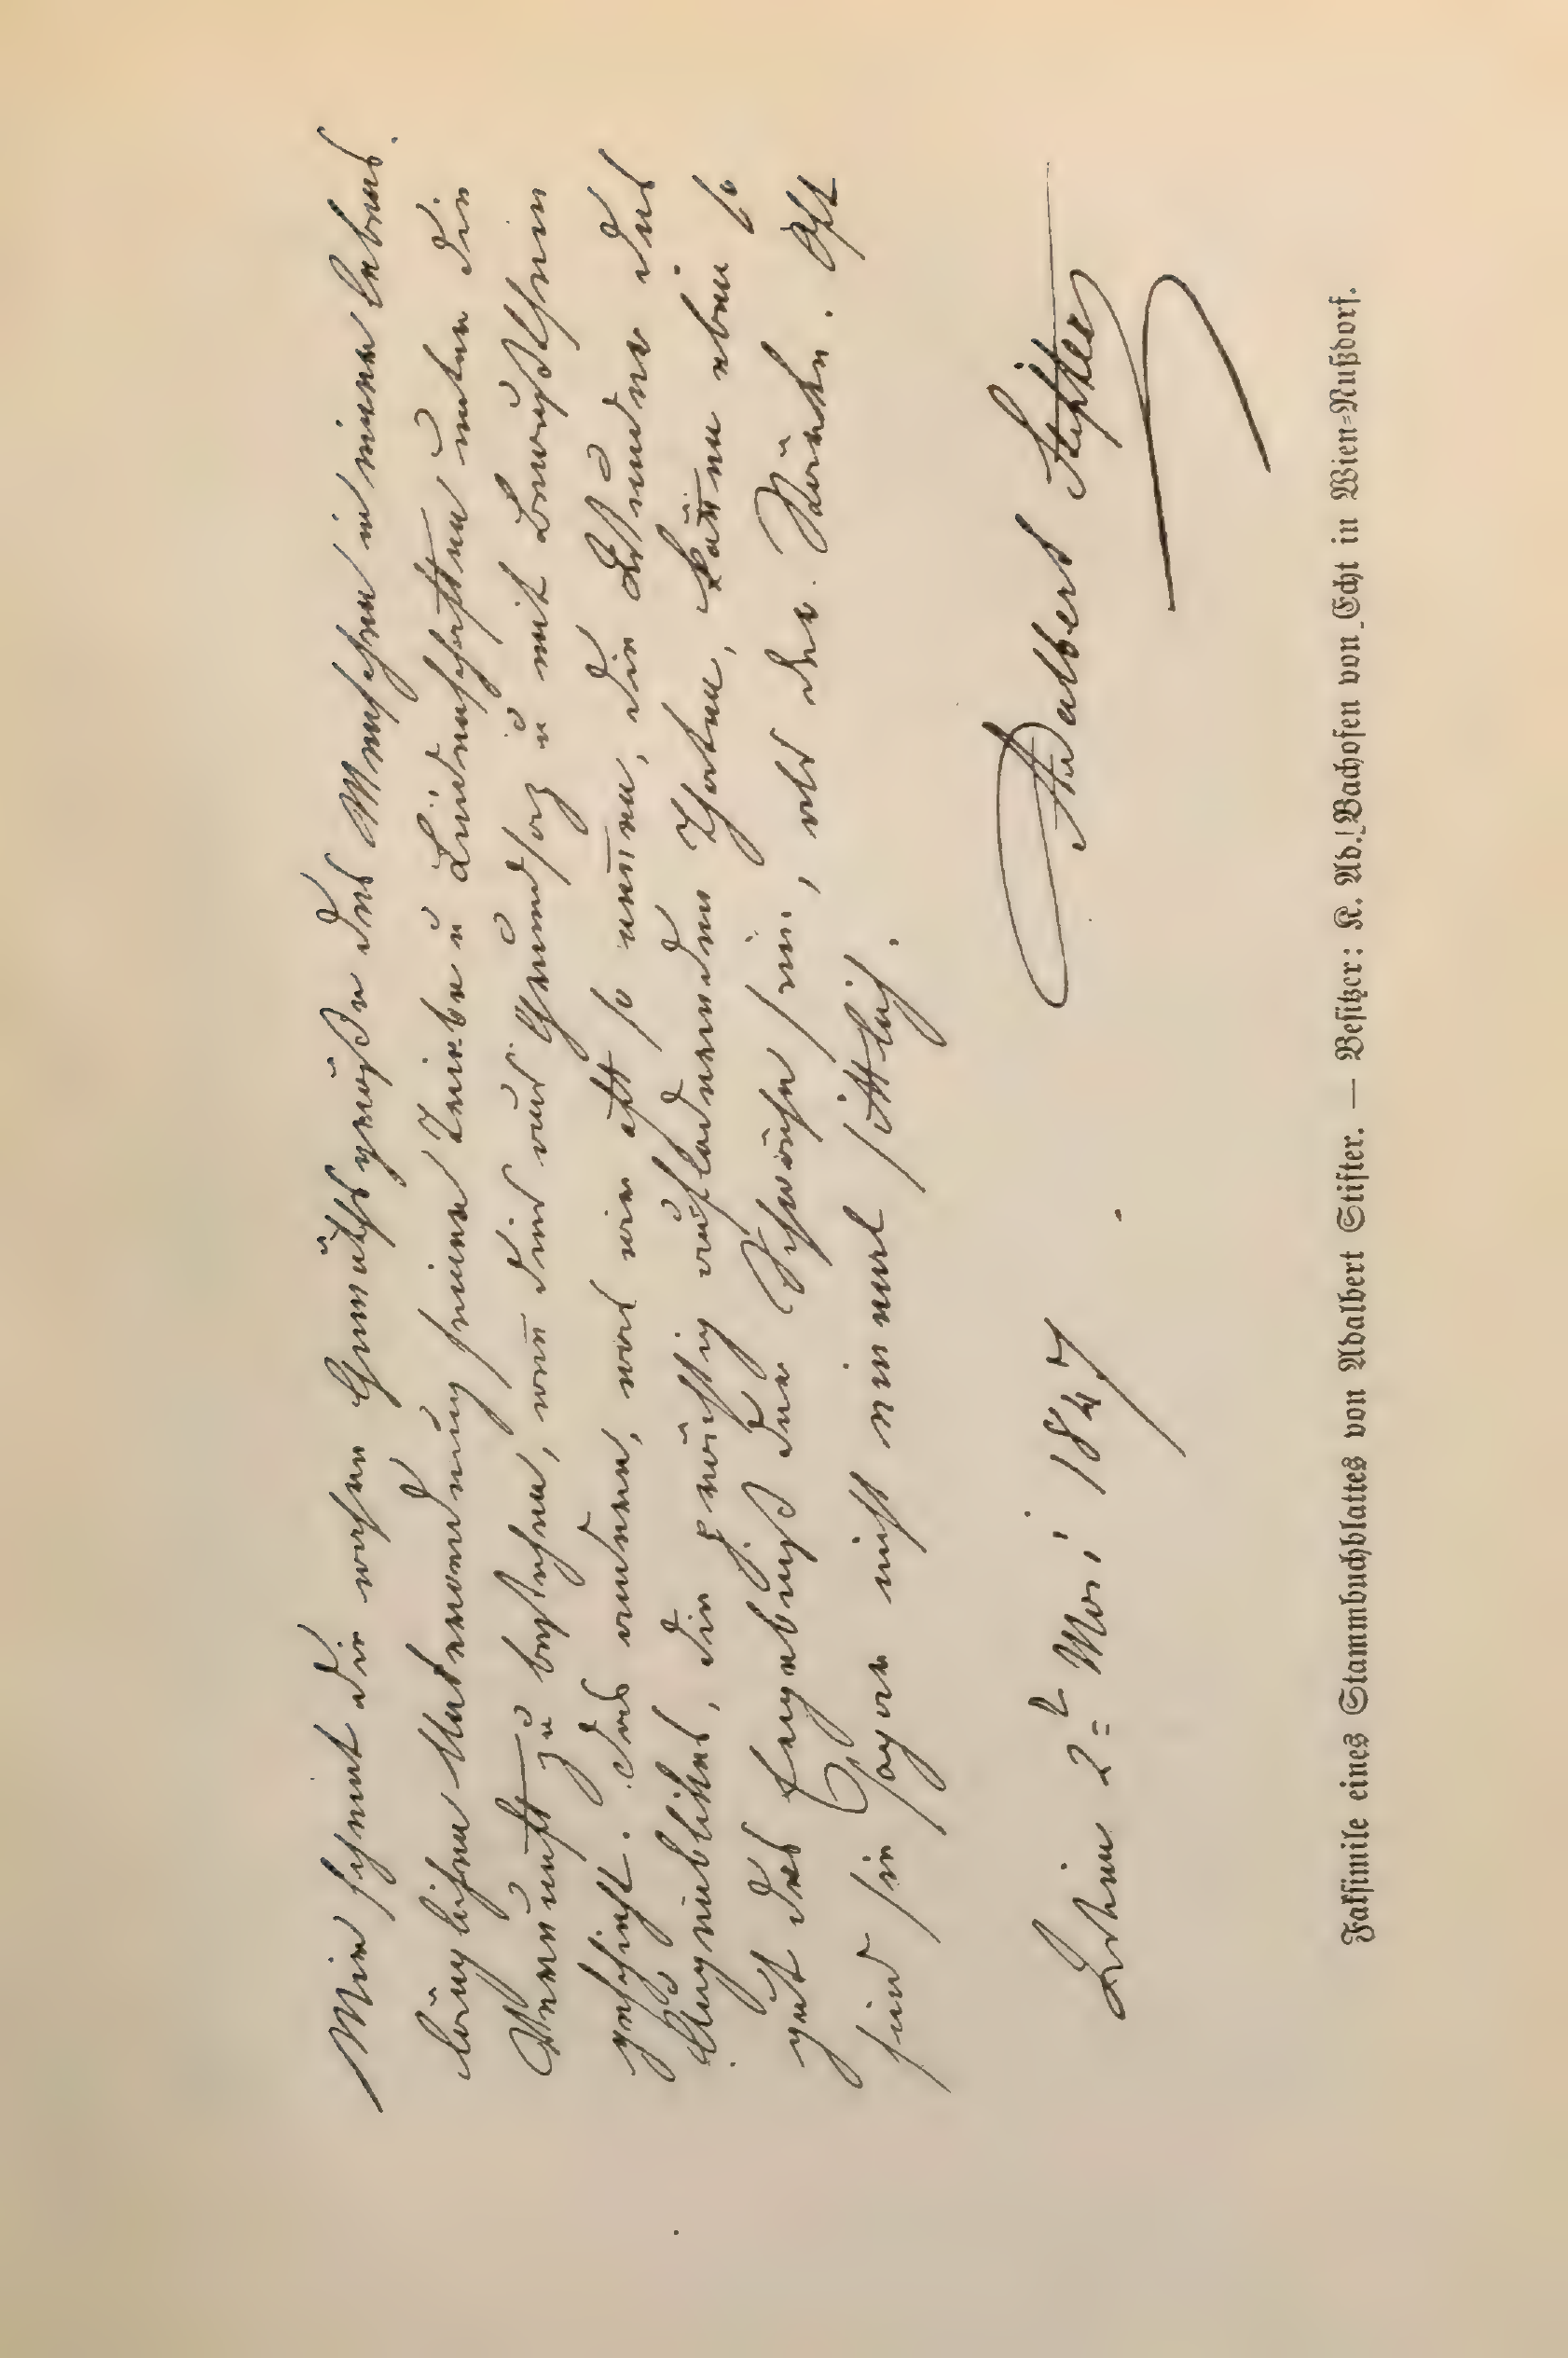 Mir scheint die wahre Gemüthsgröße des Menschen in einer lebens-
länglichen Unterordnung seiner Triebe u Leidenschaften unter die
Vernunft zu bestehen, wen̄ dies aus Grundsaz u mit Bewußtsein
geschieht. das andere, was wir oft so nen̄en, die Wunder des
Augenblikes, die prächtig aufladernden Thaten, kön̄en eben so
gut das Ergebniß der Schwäche sein, als der Stärke. Oft
sind sie sogar nicht einmal sittlich.
Wien 2t Mai 1847 Adalbert Stifter
Faksimile eines Stammbuchblattes von Adalbert Stifter. — Besitzer: K. Ad. Bachofen von Echt in Wien-Nußdorf.